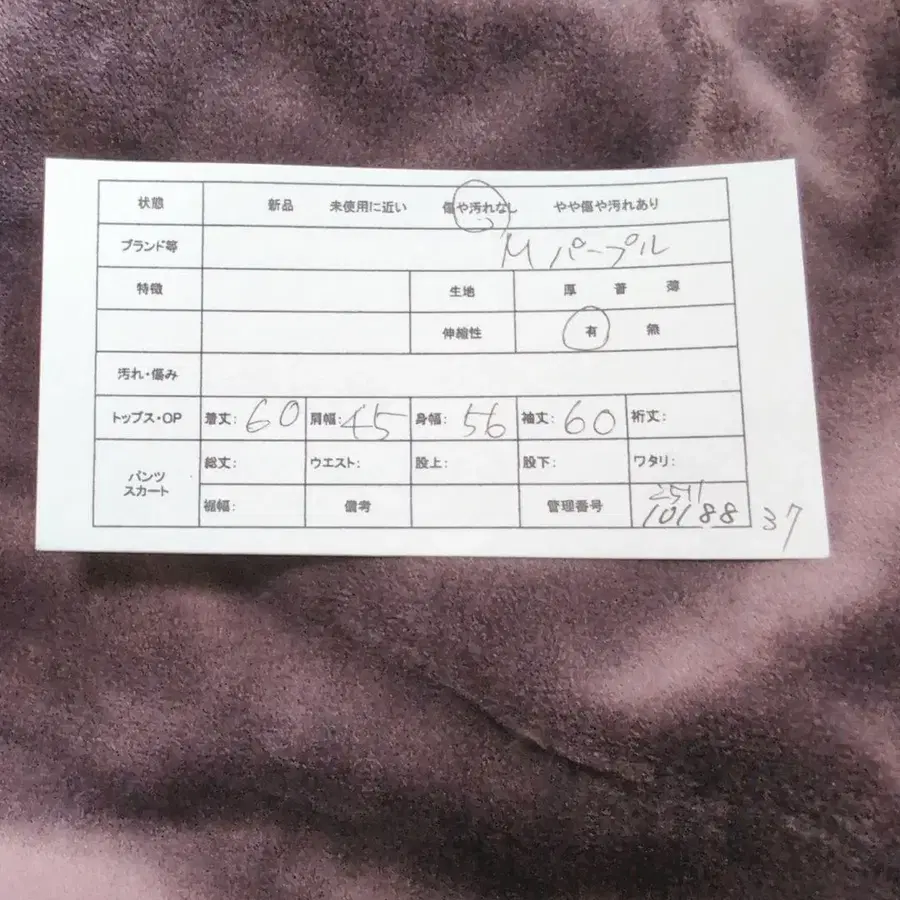 状態 新品 未使用に近い 傷や汚れなし やや傷や汚れあり
ブランド等 M パープル
特徴 生地 厚 普 薄
伸縮性 有 無
汚れ・傷み
トップス・OP 着丈: 60 肩幅: 45 身幅: 56 袖丈: 60 裄丈:
パンツ スカート 総丈: ウエスト: 股上: 股下: ワタリ:
裾幅: 備考 管理番号 2511
10188 37